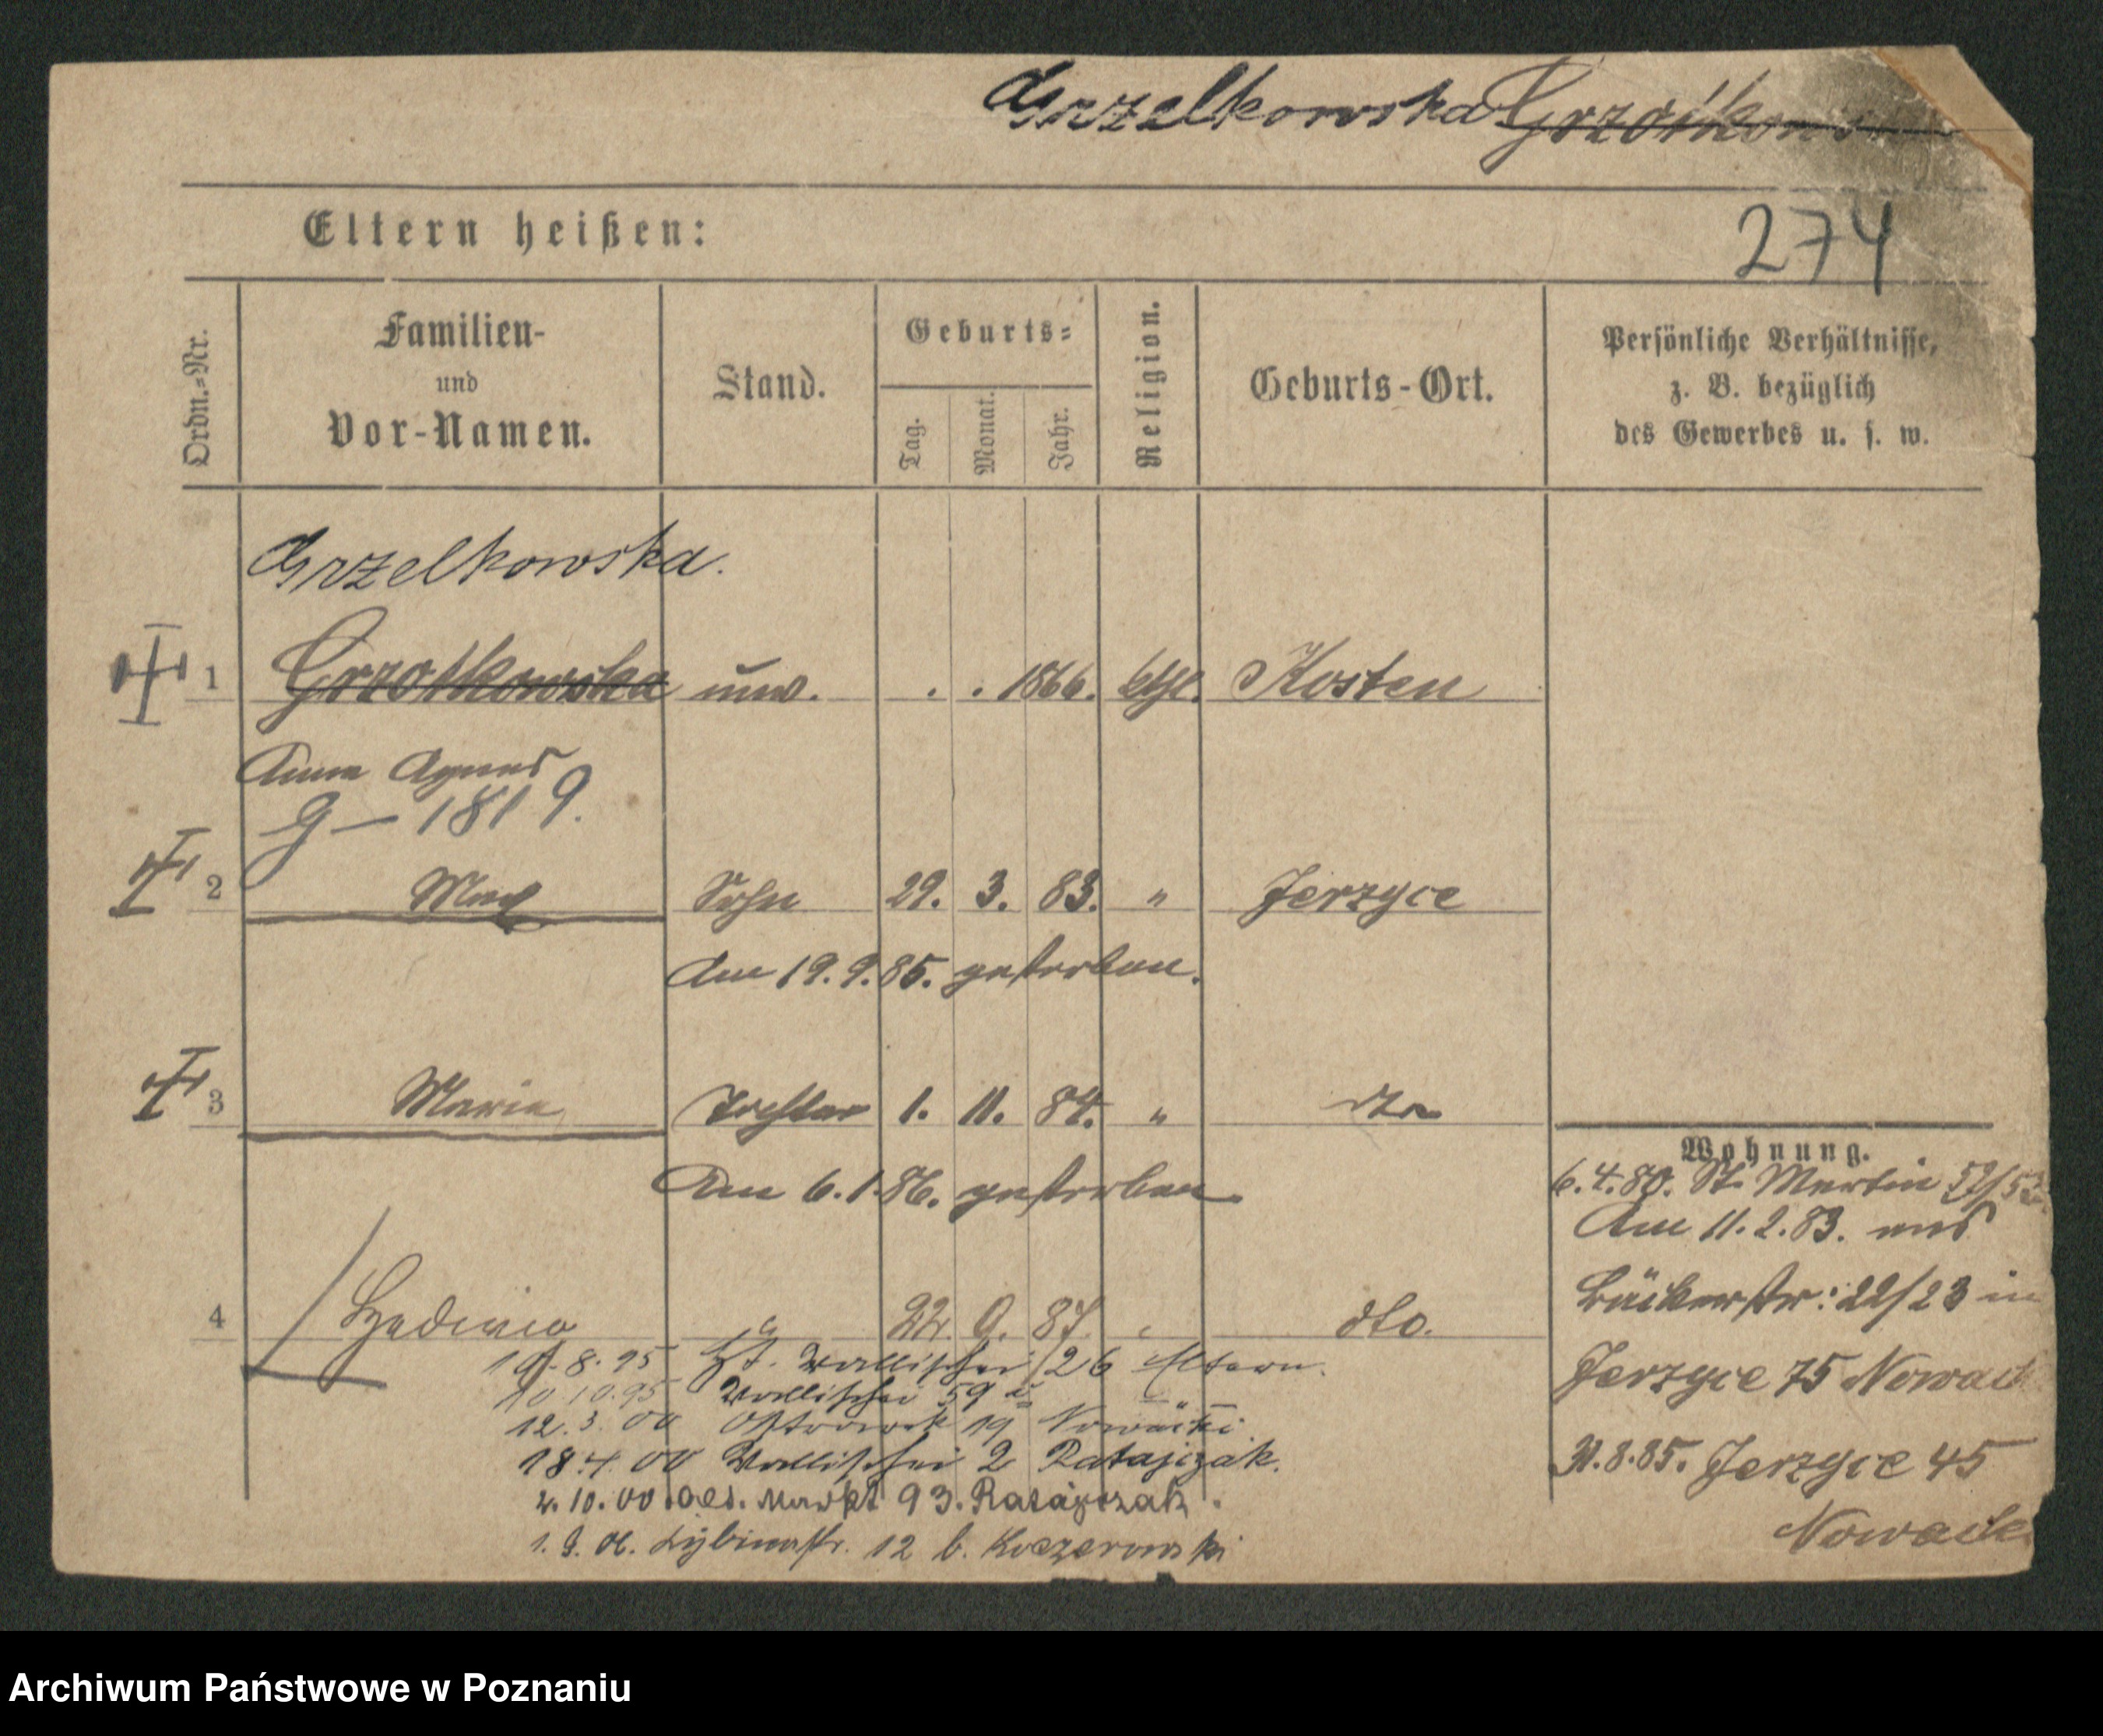 Grzelkowska Grzotkowska
Eltern heißen:
274
Ordn.=Nr.
Familien-
und
Vor-Namen.
Stand.
Geburts=
Tag.
Monat.
Jahr.
Religion.
Geburts-Ort.
Persönliche Verhältnisse,
z. B. bezüglich
des Gewerbes u. s. w.
Grzelkowska.
1 Grzotkowska unv. . . 1866. kthl. Kosten
Anna Agnes
g — 1819.
2 Max Sohn 29. 3. 83. " Jerzyce
Am 19.9.85. gestorben.
3 Maria Tochter 1. 11. 84. " dto
Am 6.1.86. gestorben
4 Hedwig " 22. 9. 87. dto.
8.95 Wallischei 26 Eltern.
10.10.95 Wallischei 59
12.3.00 Ostrowek 19 Nowacki
18.4.00 Wallischei 2 Ratajczak.
2.10.00 Markt 93. Ratajczak.
12 b. Koczorowski
Wohnung.
6.4.80. St. Martin
Am 11.2.83. aus
Bäckerstr: 22/23 in
Jerzyce 75 Nowack
31.8.85. Jerzyce 45
Nowack
Archiwum Państwowe w Poznaniu